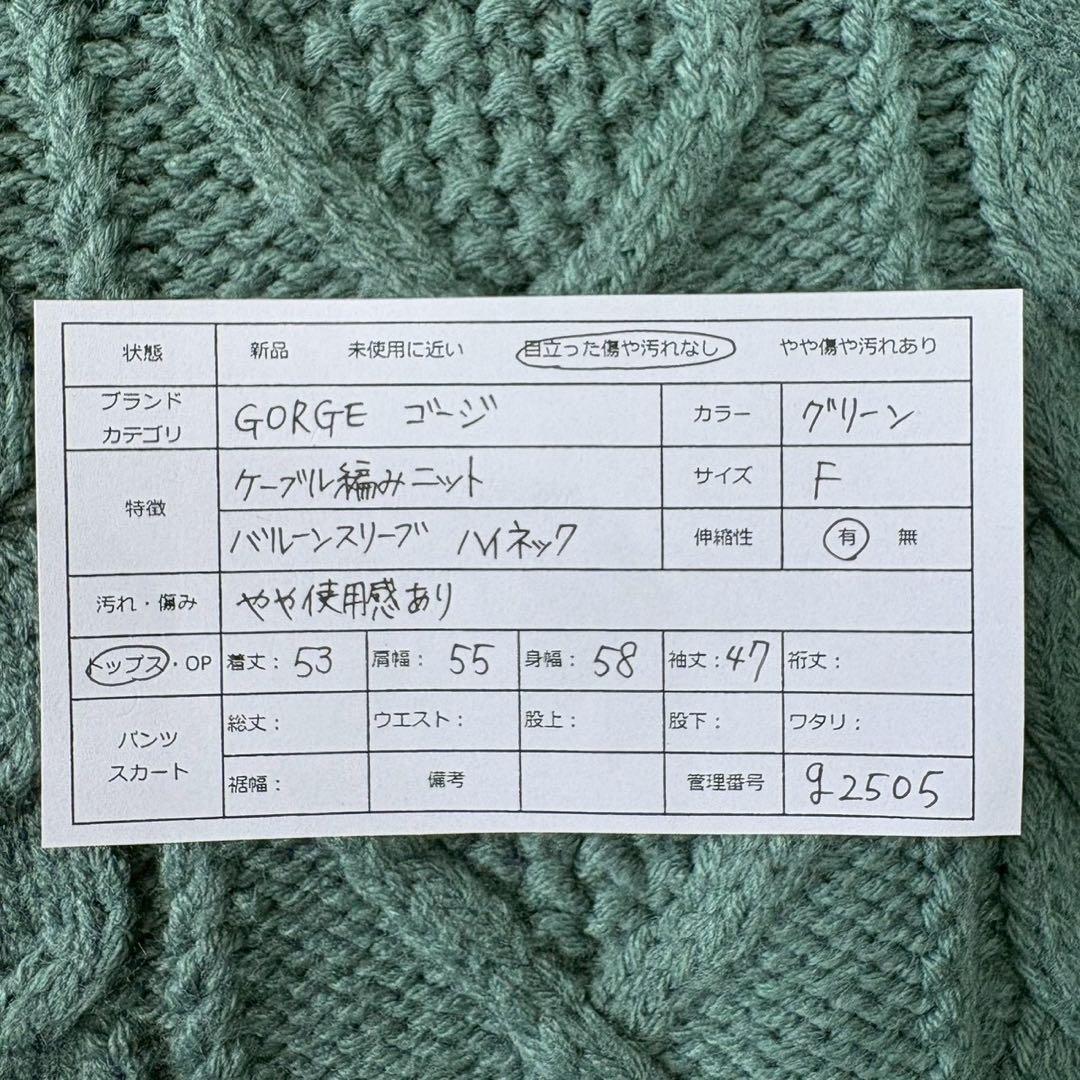 状態 新品 未使用に近い 目立った傷や汚れなし やや傷や汚れあり
ブランド
カテゴリ
GORGE ゴージ
カラー グリーン
特徴
ケーブル編みニット
サイズ F
バルーンスリーブ ハイネック
伸縮性 有 無
汚れ・傷み やや使用感あり
トップス・OP 着丈：53 肩幅：55 身幅：58 袖丈：47 裄丈：
パンツ
スカート
総丈： ウエスト： 股上： 股下： ワタリ：
裾幅： 備考 管理番号 g2505